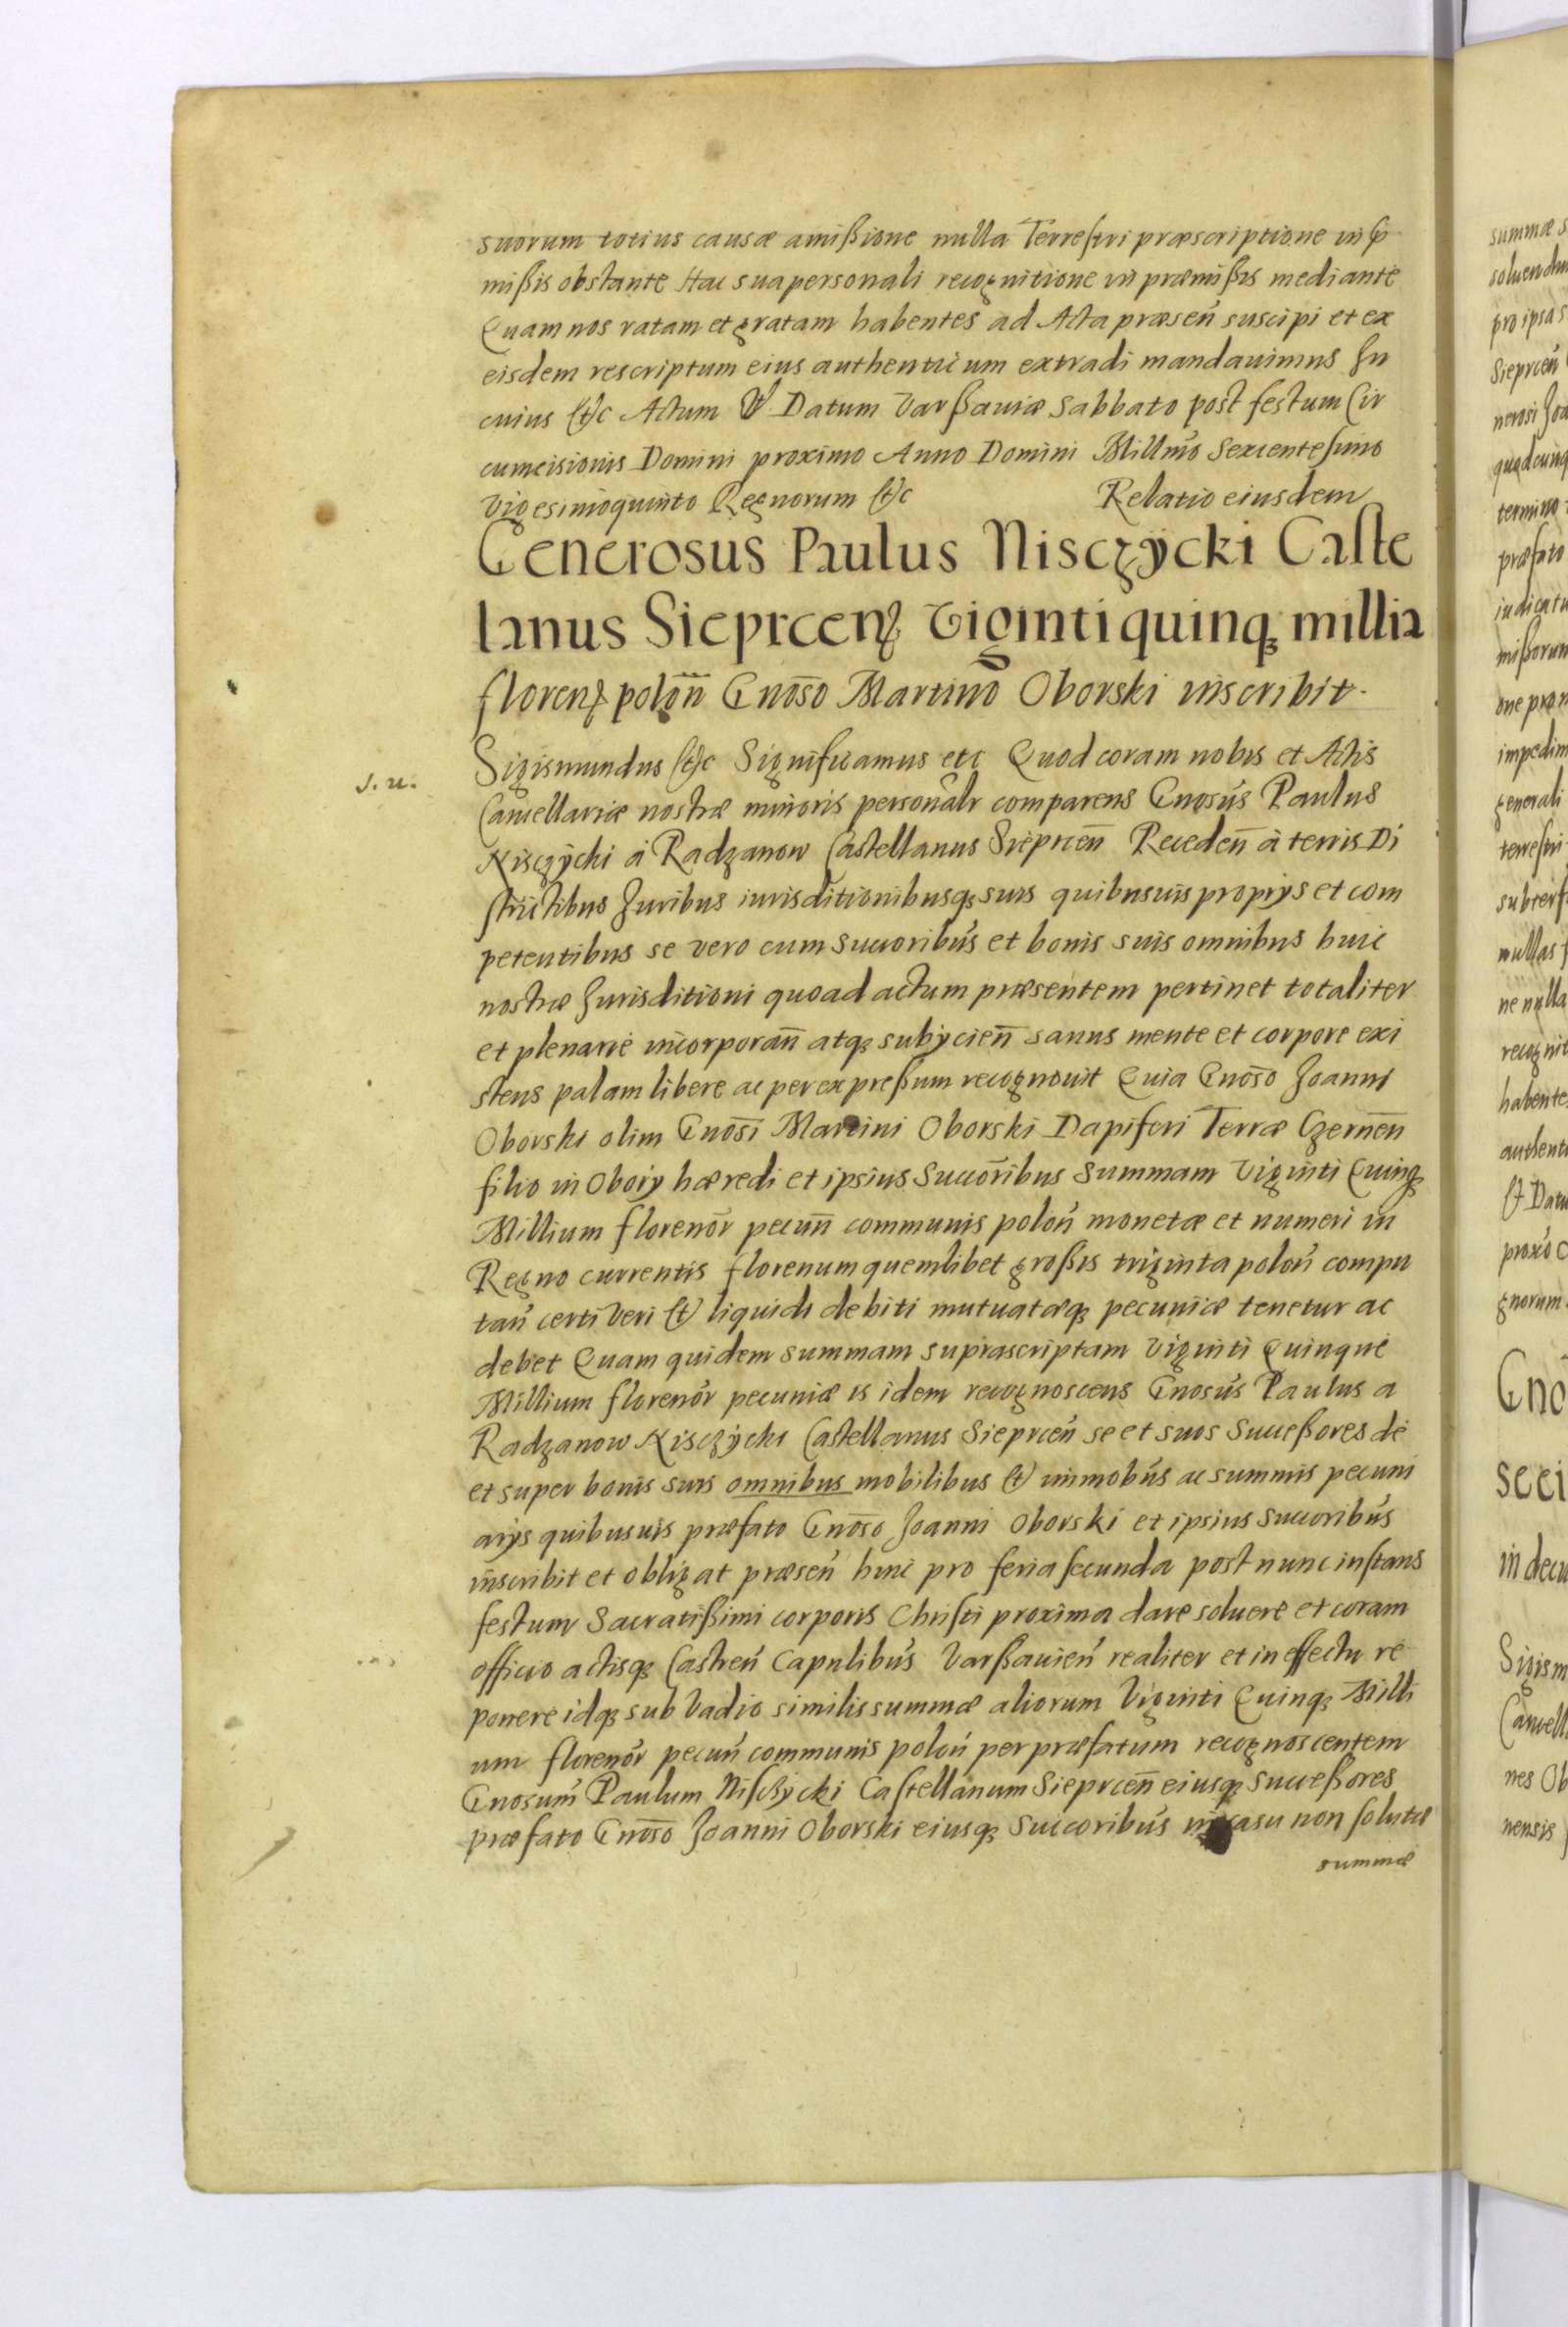 suorum totius causæ amißione nulla Terrestri præscriptione in p̄
mißis obstante Hac sua personali recognitione in præmißis mediante
Quam nos ratam et gratam habentes ad Acta præsen̄ suscipi et ex
eisdem rescriptum eius authenticum extradi mandauimus In
cuius etc Actum et Datum Varßauiæ Sabbato post festum Cir
cumcisionis Domini proximo Anno Domini Millmo Sexcentesimo
Vigesimoquinto Regnorum etc Relatio eiusdem
Generosus Paulus Nisczÿcki Caste
lanus Sieprcen Viginti quinq millia
floren polon̄ Gnōso Martino Oborski inscribit.
Sigismundus etc Significamus etc Quod coram nobis et Actis
J. u.
Cancellariæ nostræ minoris personalr comparens Gnosus Paulus
Nisczÿcki à Radzanow Castellanus Sieprcen̄ Receden̄ à terris Di
strictibus Juribus iurisditionibusq suis quibusuis proprÿs et com
petentibus se vero cum Succoribus et bonis suis omnibus huic
nostræ Jurisditioni quoad actum præsentem pertinet totaliter
et plenarie incorporan̄ atq subÿcien̄ sanus mente et corpore exi
stens palam libere ac per expreßum recognouit Quia Gnōso Joanni
Oborski olim Gnōsi Martini Oborski Dapiferi Terræ Czernen̄
filio in Obory hæredi et ipsius Succōribus Summam Viginti Quinq
Millium florenōr pecun̄ communis polon̄ monetæ et numeri in
Regno currentis florenum quemlibet großis triginta polon̄ compu
tan̄ certi veri et liquidi debiti mutuatæq pecuniæ tenetur ac
debet Quam quidem summam suprascriptam Viginti Quinque
Millium florenōr pecuniæ is idem recognoscens Gnosus Paulus a
Radzanow Nisczÿcki Castellanus Sieprcen̄ se et suos Succeßores de
et super bonis suis omnibus mobilibus et immobus ac summis pecuni
arÿs quibusuis præfato Gnōso Joanni Oborski et ipsius Succoribus
inscribit et obligat præsen̄ hinc pro feria secunda post nunc instans
festum Sacratißimi corporis Christi proxima dare soluere et coram
officio actisq Castren̄ Capnlibus Varßauien̄ realiter et in effectu re
ponere idq sub Vadio similis summæ aliorum Viginti Quinq Milli
um florenōr pecun̄ communis polon̄ per præfatum recognoscentem
Gnosum Paulum Nisczÿcki Castellanum Sieprcen̄ eiusq Succeßores
præfato Gnōso Joanni Oborski eiusq Succoribus in casu non solutæ
summæ